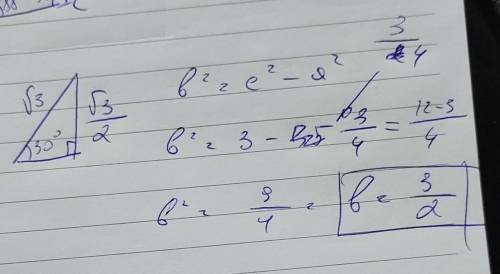 3/4
√3
√3/2
30°
b² = c² - a²
b² = 3 - 3/4 = 12-3/4
b² = 9/4 = b = 3/2